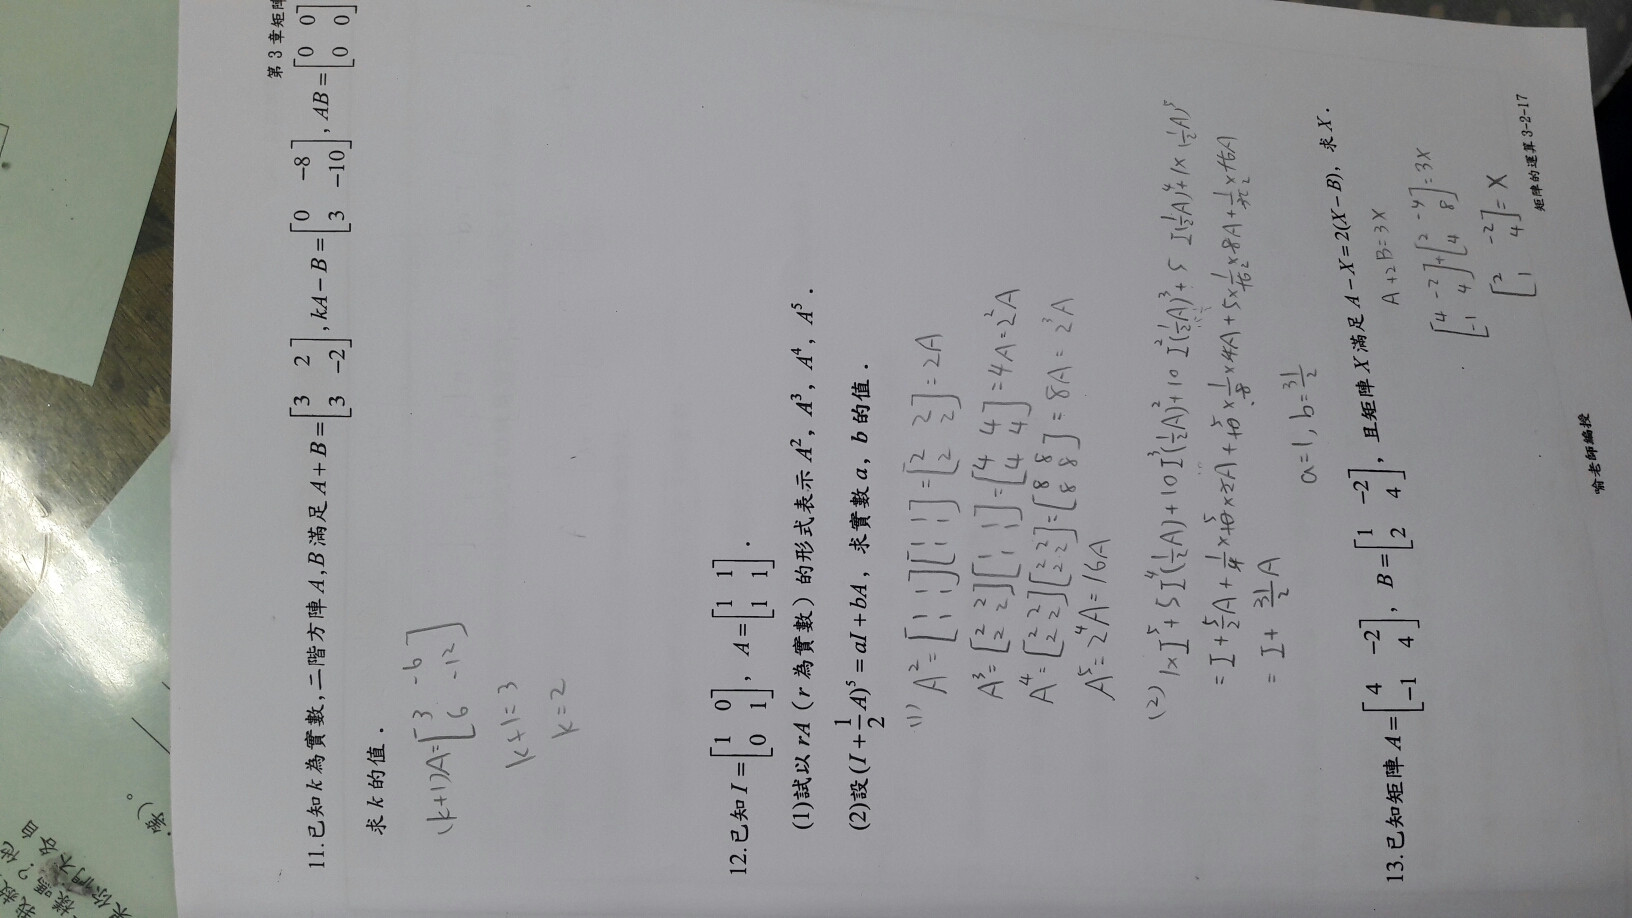 第3章矩陣
11.已知k為實數,二階方陣A,B滿足A+B=[3 2; 3 -2],kA-B=[0 -8; 3 -10],AB=[0 0; 0 0]
求k的值.
(k+1)A=[3 -6; 6 -12]
k+1=3
k=2
12.已知I=[1 0; 0 1],A=[1 1; 1 1].
(1)試以rA(r為實數)的形式表示A²,A³,A⁴,A⁵.
(2)設(I+1/2A)⁵=aI+bA,求實數a,b的值.
(1)
A²=[1 1; 1 1][1 1; 1 1]=[2 2; 2 2]=2A
A³=[2 2; 2 2][1 1; 1 1]=[4 4; 4 4]=4A=2²A
A⁴=[2 2; 2 2][2 2; 2 2]=[8 8; 8 8]=8A=2³A
A⁵=2⁴A=16A
(2) 1×I⁵+5I⁴(1/2A)+10I³(1/2A)²+10I²(1/2A)³+5I(1/2A)⁴+1×(1/2A)⁵
=I+5/2A+
=I+31/2A
a=1,b=31/2
13.已知矩陣A=[4 -2; -1 4],B=[1 -2; 2 4],且矩陣X滿足A-X=2(X-B),求X.
A+2B=3X
[4 -2; -1 4]+[2 -4; 4 8]=3X
[2 -2; 1 4]=X
喻老師編授
矩陣的運算3-2-17